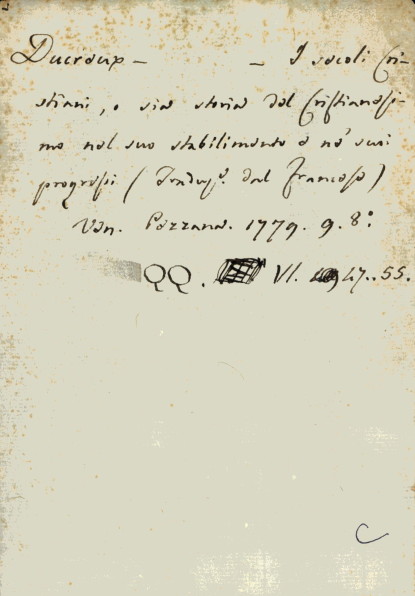 Ducreux - - I secoli Cri-
stiani, o sia storia del Cristianesi-
mo nel suo stabilimento e ne' suoi
progressi (Traduz.e dal Francese)
Ven. Pezzana. 1779. 9. 8.°
QQ. VI. 47..55.
C